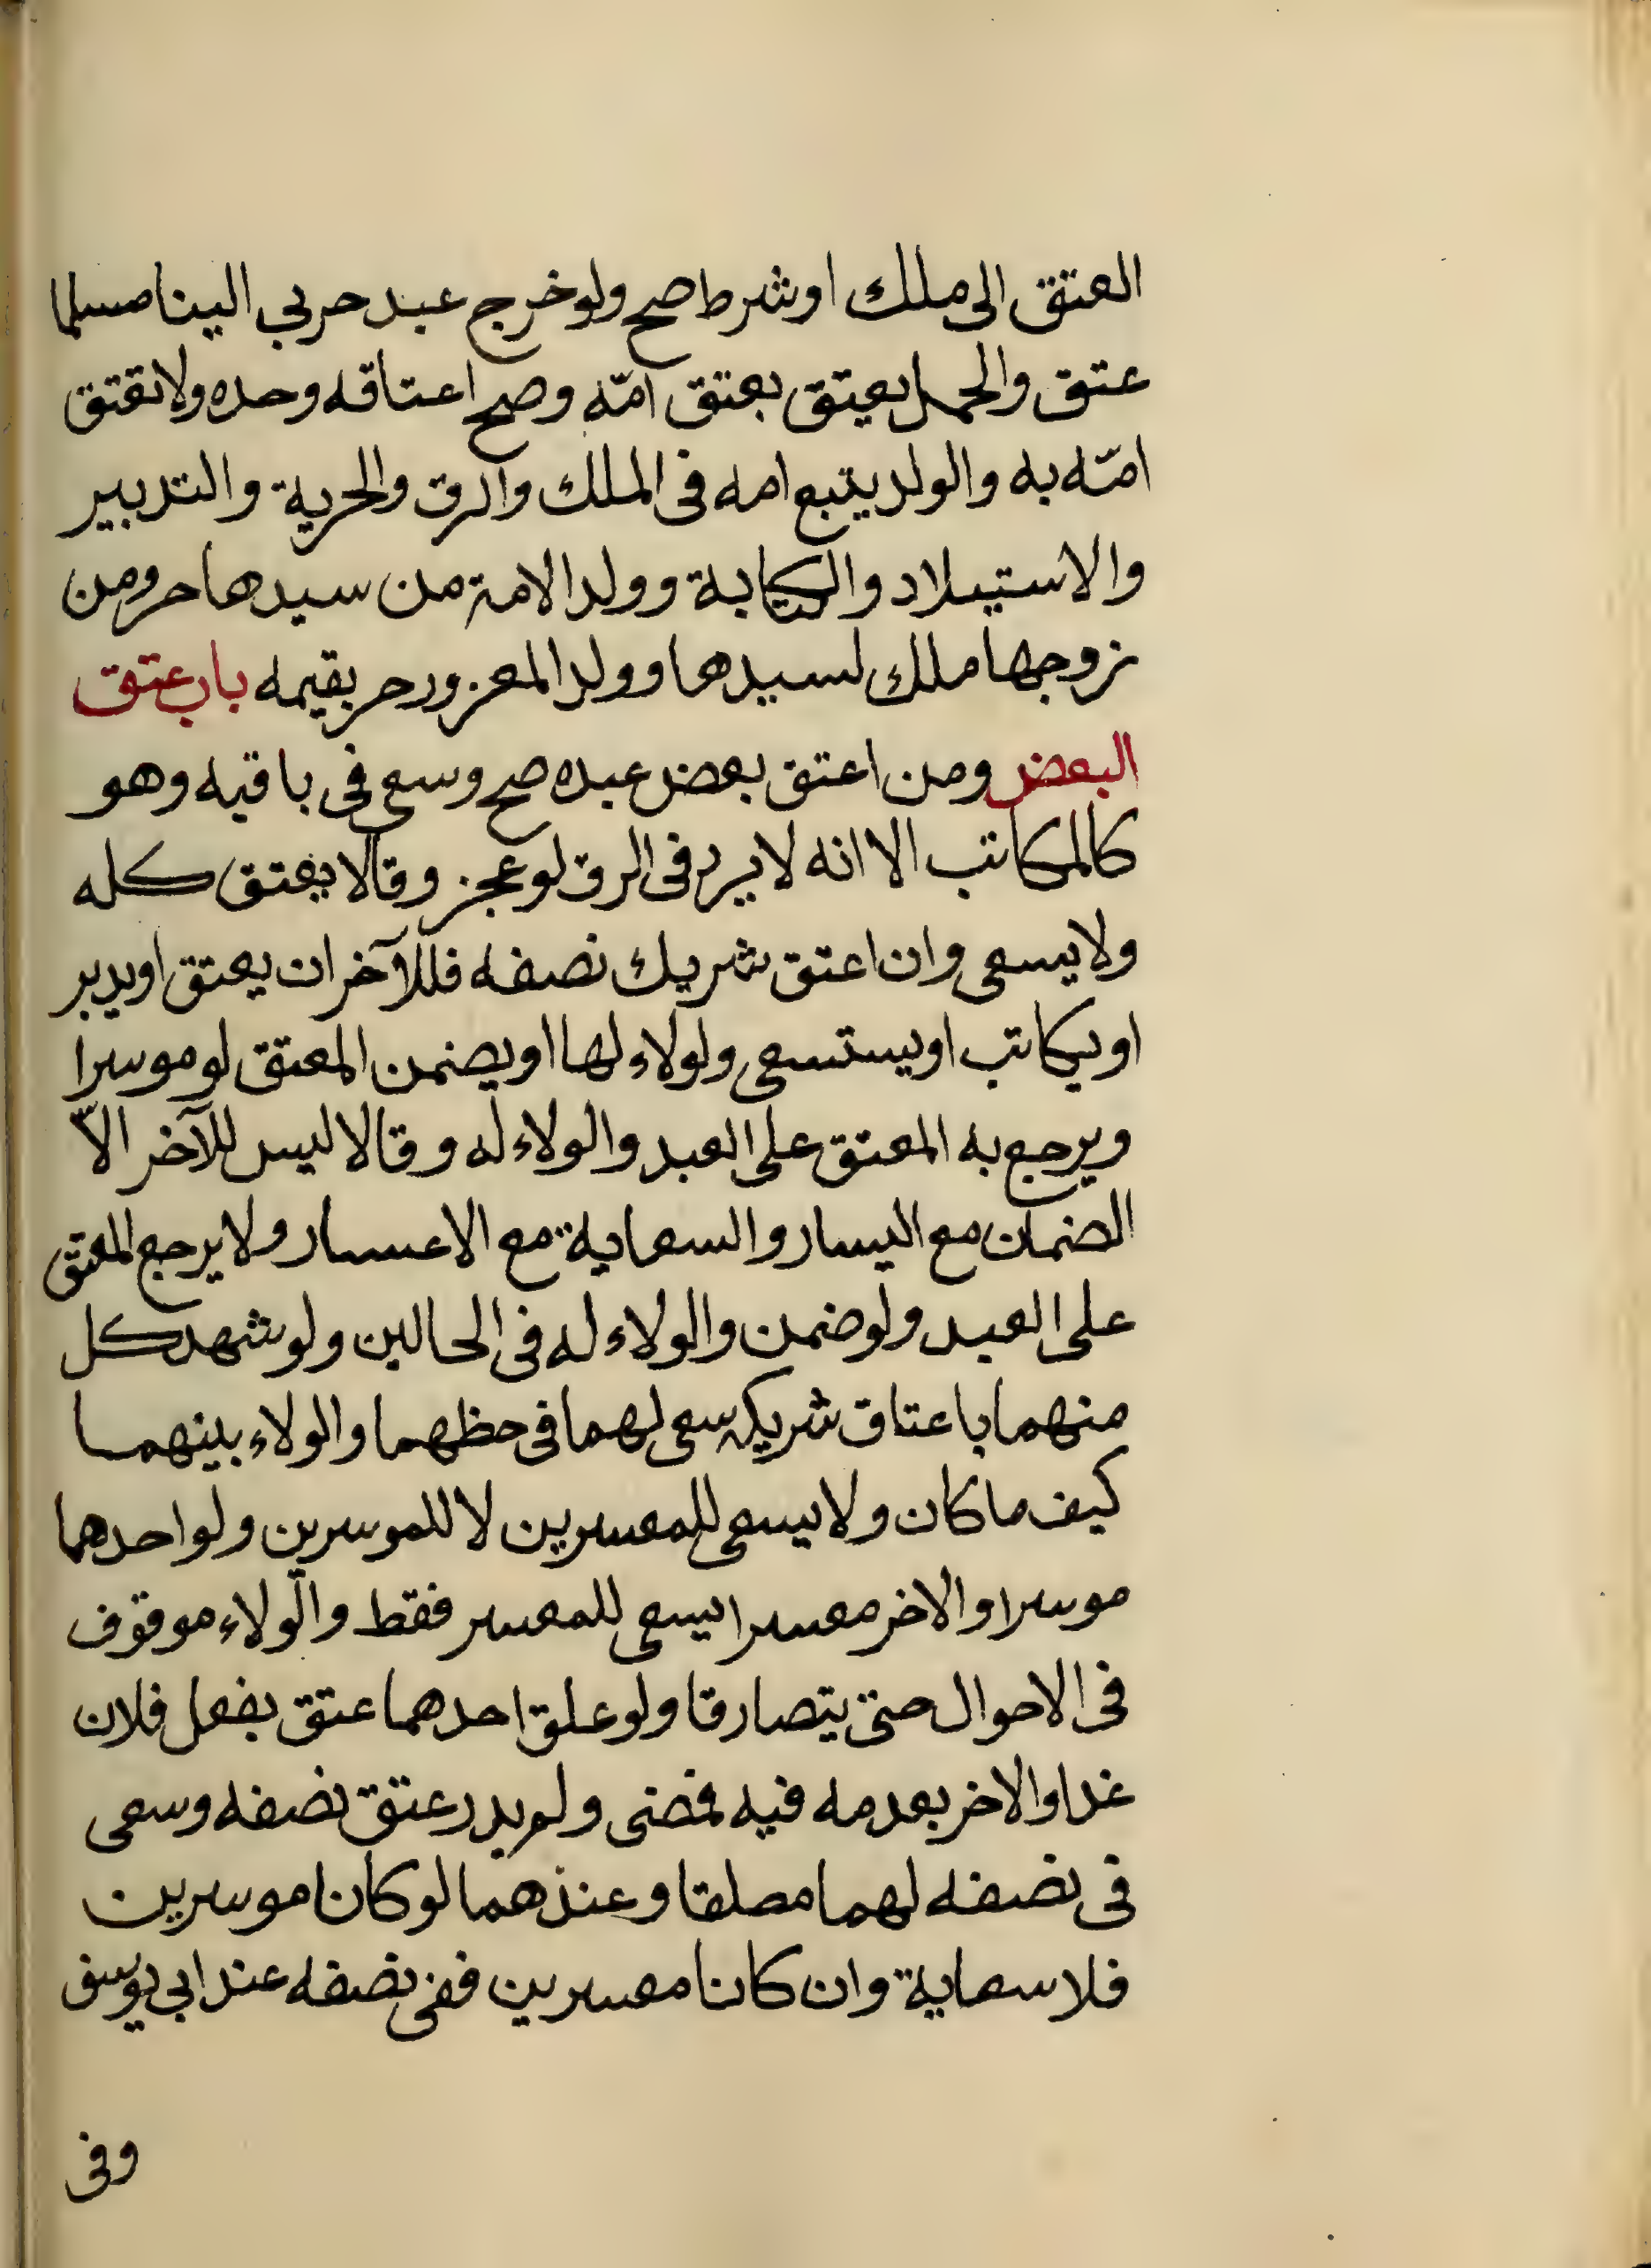 العتق الى ملك او شرط صح ولو خرج عبد حربي الينا مسلما
عتق والحمل يعتق بعتق امّه وصح اعتاقه وحده ولا تعتق
امّه به والولد يتبع امه فى الملك والرق والحرية والتدبير
والاستيلاد والكتابة وولد الامة من سيدها حر ومن
زوجها ملك لسيدها وولد المغرور حر بقيمه باب عتق
البعض ومن اعتق بعض عبده صح وسعى فى باقيه وهو
كالمكاتب الا انه لا يرد فى الرق لو عجز وقالا يعتق كله
ولا يسعى وان اعتق شريك نصفه فللآخر ان يعتق او يدبر
او يكاتب او يستسعى ولولاء لها او يضمن المعتق لو موسرا
ويرجع به المعتق على العبد والولاء له وقالا ليس للآخر الّا
الضمان مع اليسار والسعاية مع الاعسار ولا يرجع المعتق
على العبد ولو ضمن والولاء له فى الحالين ولو شهد كل
منهما باعتاق شريكه سعى لهما فى حظهما والولاء بينهما
كيف ما كان ولا يسعى للمعسرين لا للموسرين ولو احدهما
موسرا والاخر معسرا يسعى للمعسر فقط والولاء موقوف
فى الاحوال حتى يتصادقا ولو علق احدهما عتق بفعل فلان
غدا والاخر بعدمه فيه فمضى ولم يدر عتق نصفه وسعى
فى نصفه لهما مطلقا وعندهما لو كانا موسرين
فلا سعاية وان كانا معسرين ففى نصفه عند ابي يوسف
وفى